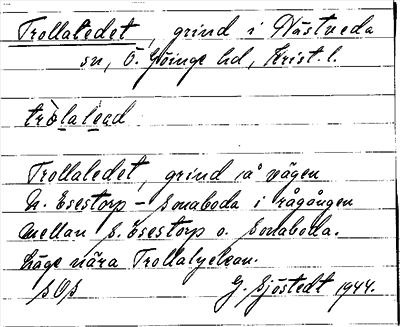 Trollaledet, grind i Nåstveda
sn, Ö. Göinge hd, Krist. l.
tròlalead
Trollaledet, grind å vägen
N. Esestorp - Sonaboda i rågången
mellan S. Esestorp o. Sonaboda.
Läge nära Trollalyckan.
G. Sjöstedt 1944.